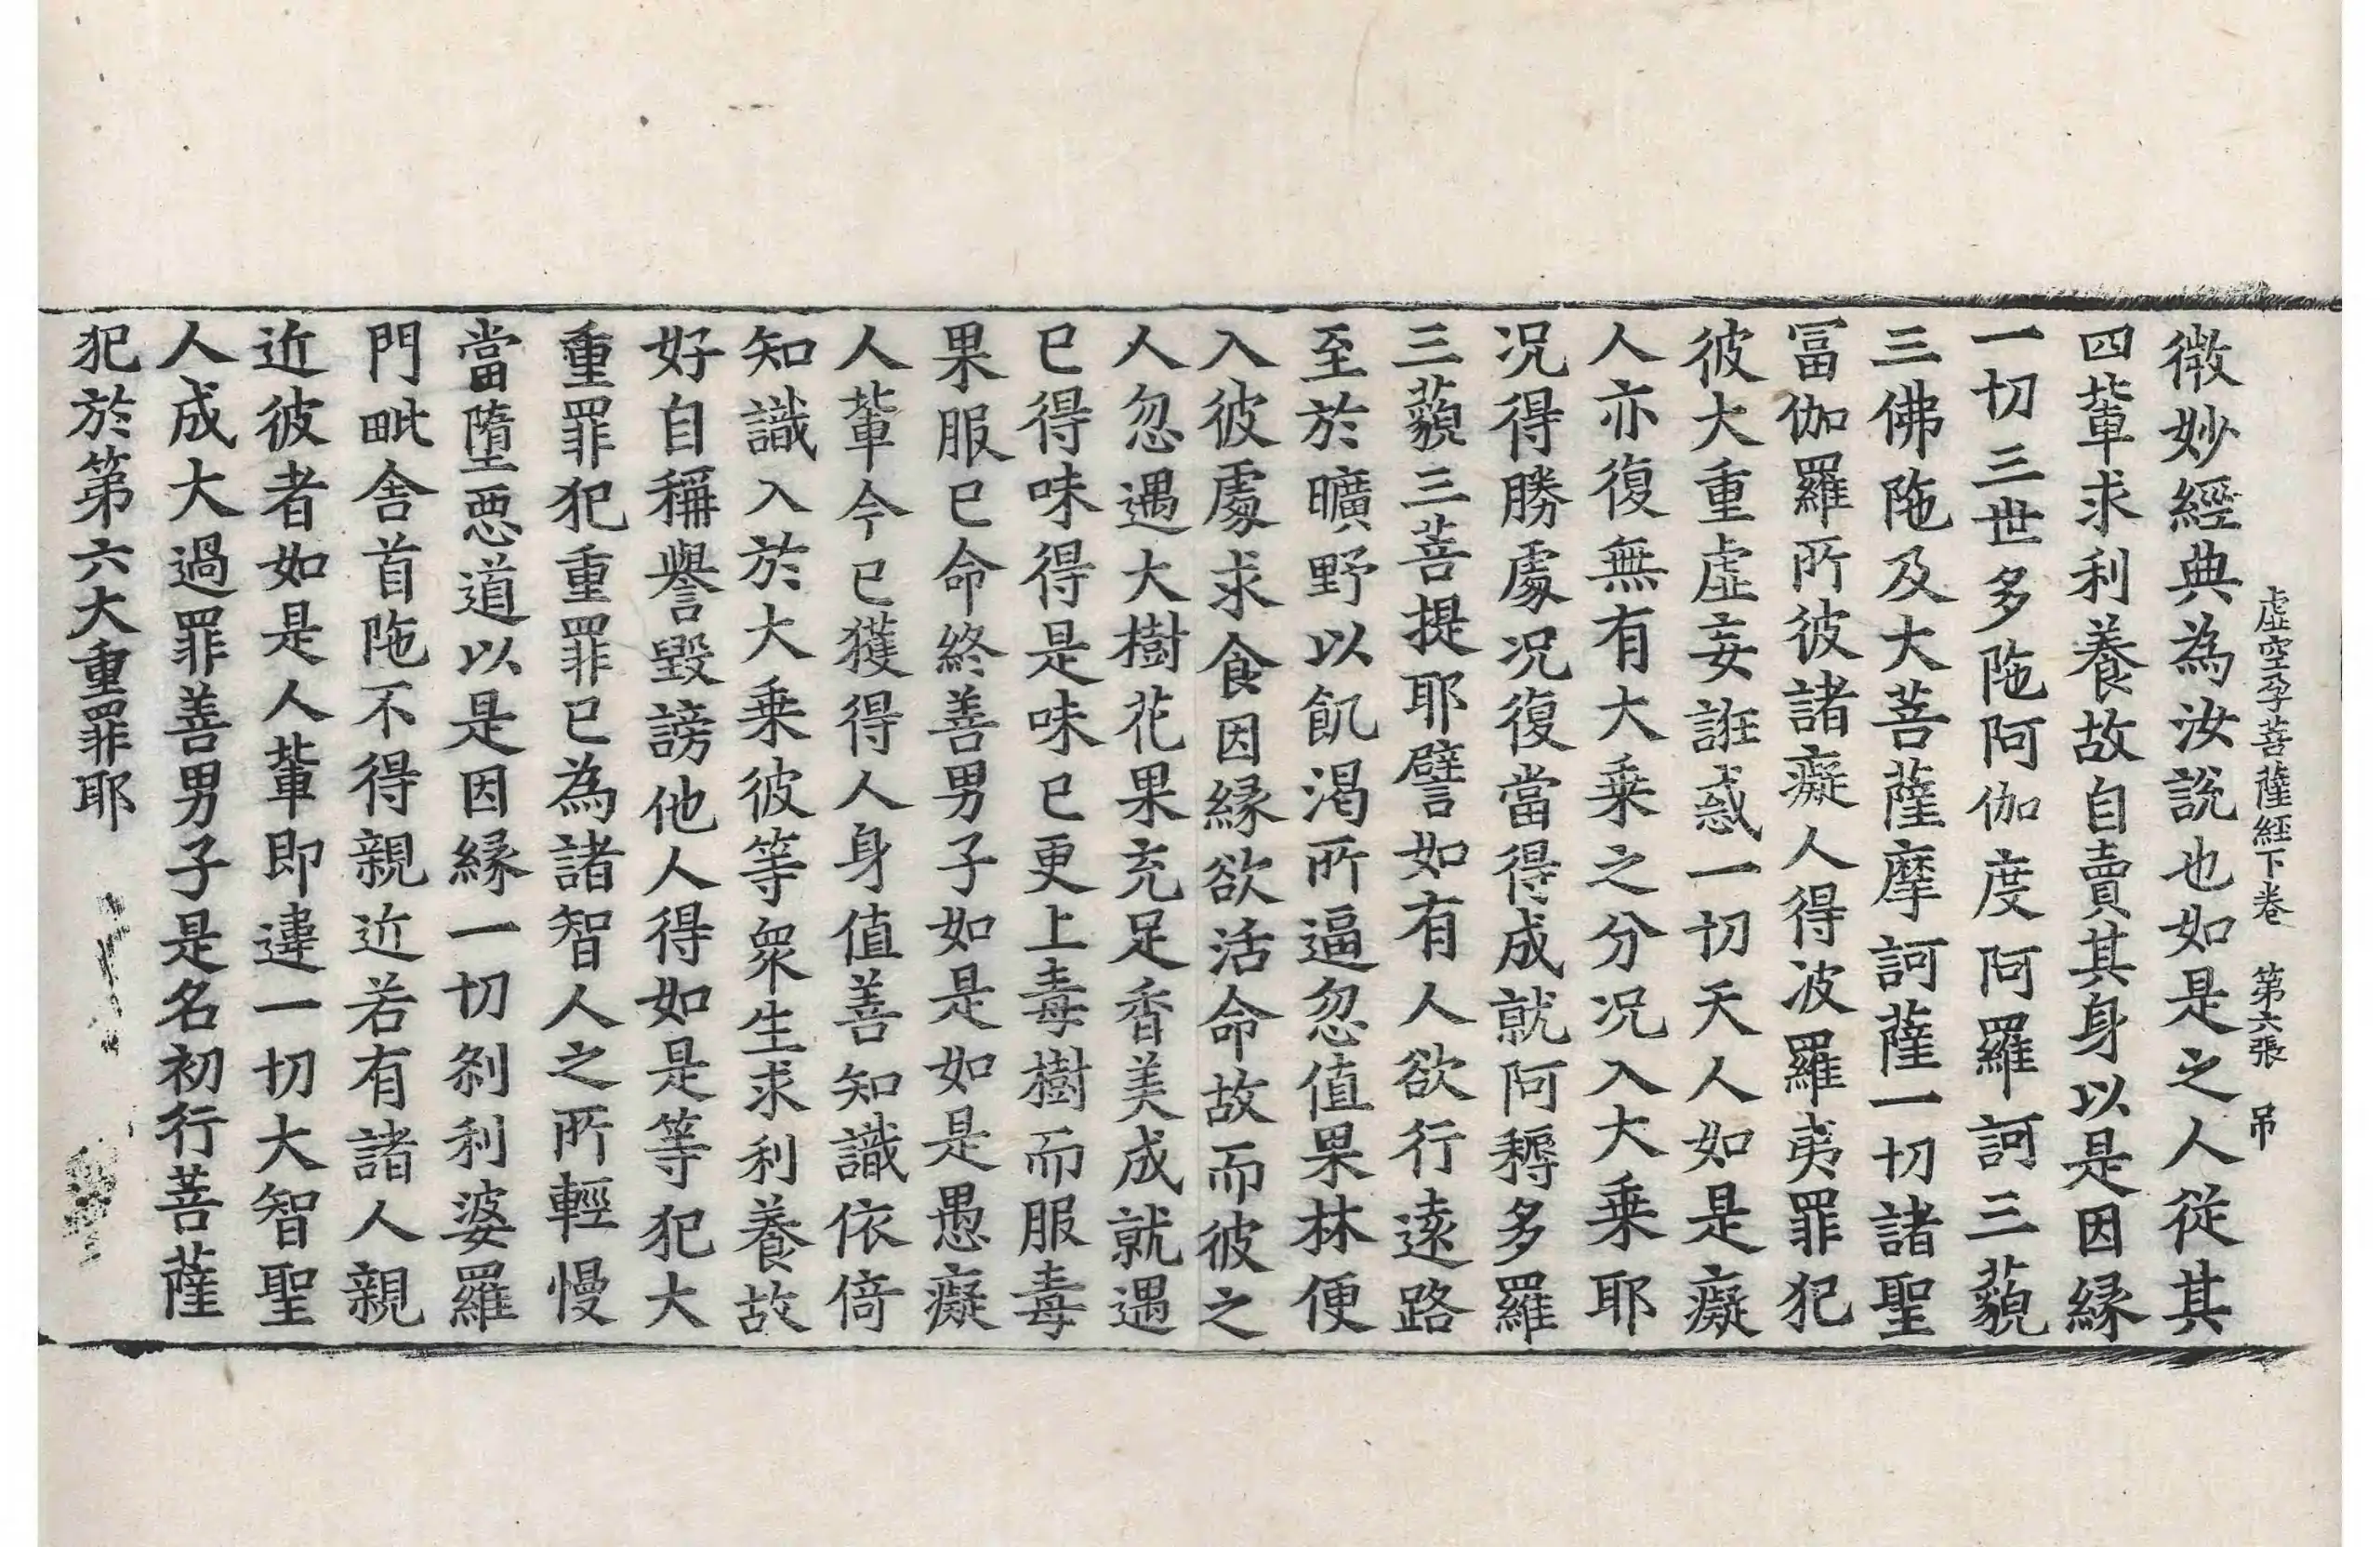 虛空孕菩薩經下卷 第六張 吊
微妙經典為汝說也如是之人從其
四輩求利養故自賣其身以是因緣
一切三世多陁阿伽度阿羅訶三藐
三佛陁及大菩薩摩訶薩一切諸聖
冨伽羅所彼諸癡人得波羅夷罪犯
彼大重虛妄誑惑一切天人如是癡
人亦復無有大乗之分况入大乗耶
况得勝處况復當得成就阿耨多羅
三藐三菩提耶譬如有人欲行遠路
至於曠野以飢渴所逼忽值果林便
入彼處求食因緣欲活命故而彼之
人忽遇大樹花果充足香美成就遇
已得味得是味已更上毒樹而服毒
果服已命終善男子如是如是愚癡
人輩今已獲得人身值善知識依倚
知識入於大乗彼等衆生求利養故
好自稱譽毀謗他人得如是等犯大
重罪犯重罪已為諸智人之所輕慢
當墮惡道以是因緣一切刹利婆羅
門毗舍首陁不得親近若有諸人親
近彼者如是人輩即違一切大智聖
人成大過罪善男子是名初行菩薩
犯於第六大重罪耶